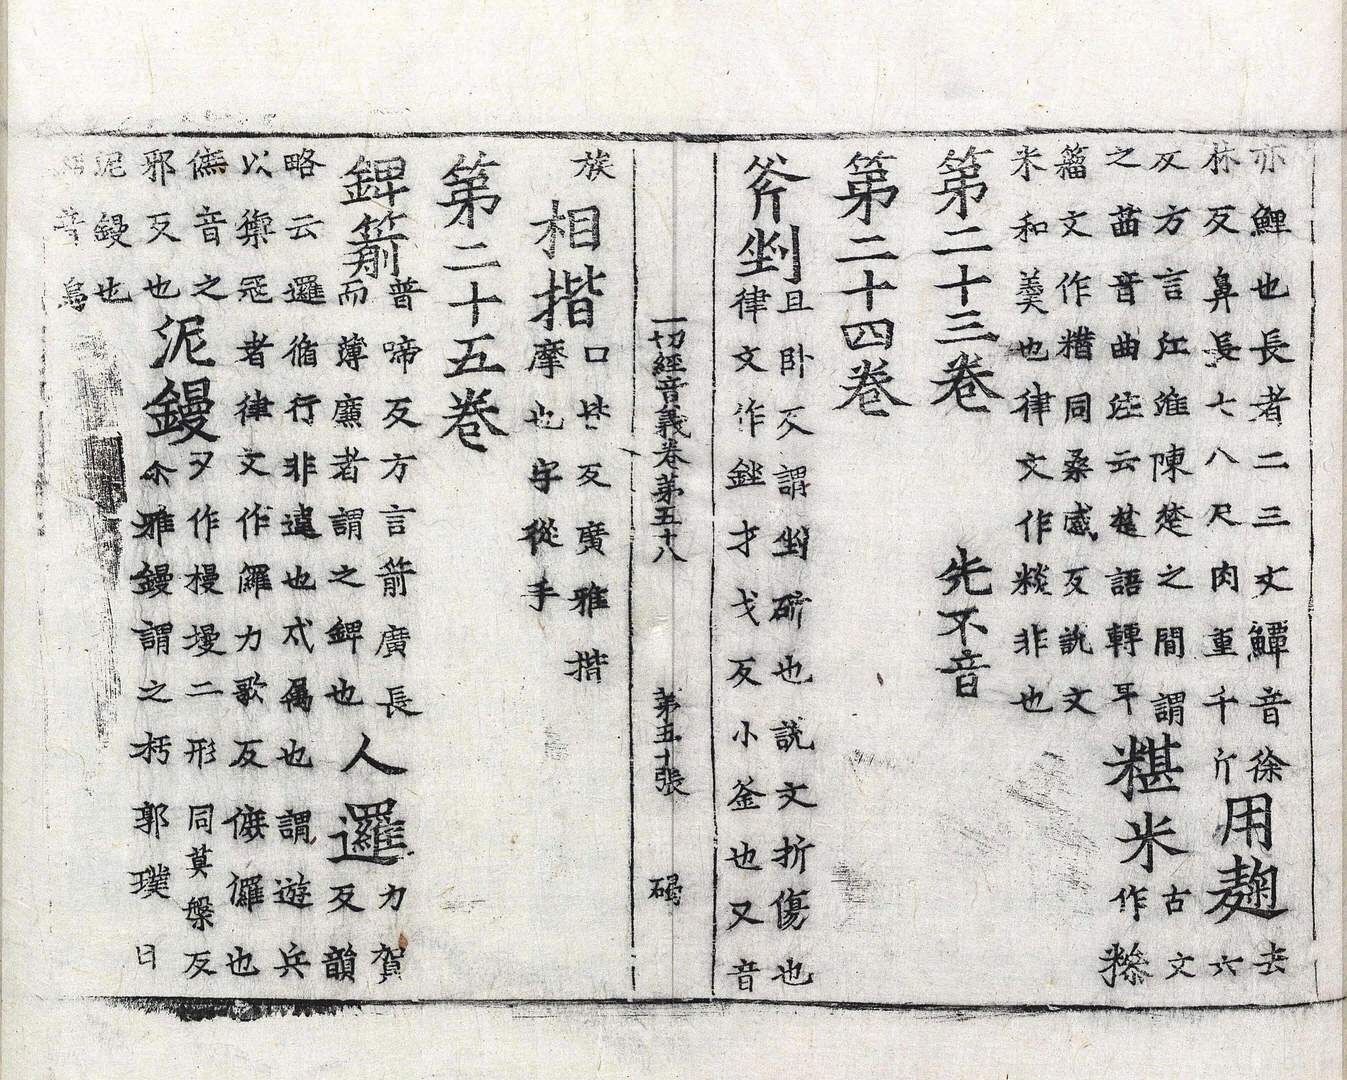 亦鯉也長者二三丈鱏音徐
林反鼻長七八尺肉重千斤用麹去六
反方言江淮陳楚之間謂
之䒼音曲注云楚語轉耳糂米古文作糝
籒文作糣同桑感反說文
米和羹也律文作䊏非也
第二十三卷 先不音
第二十四卷
斧剉且卧反謂剉斫也說文折傷也
律文作銼才戈反小釜也又音
族
一切經音義卷第五十八 第五十張 碣
相揩口皆反廣雅揩
摩也字從手
第二十五卷
錍箭普啼反方言箭廣長
而薄廉者謂之錍也人邏力賀反韻
略云邏循行非違也戍屬也謂遊兵
以禦冦者律文作儸力歌反㒇儸也
㒇音之
邪反也泥鏝又作槾墁二形同莫槃反
尒雅鏝謂之杇郭璞曰
泥鏝也
音烏